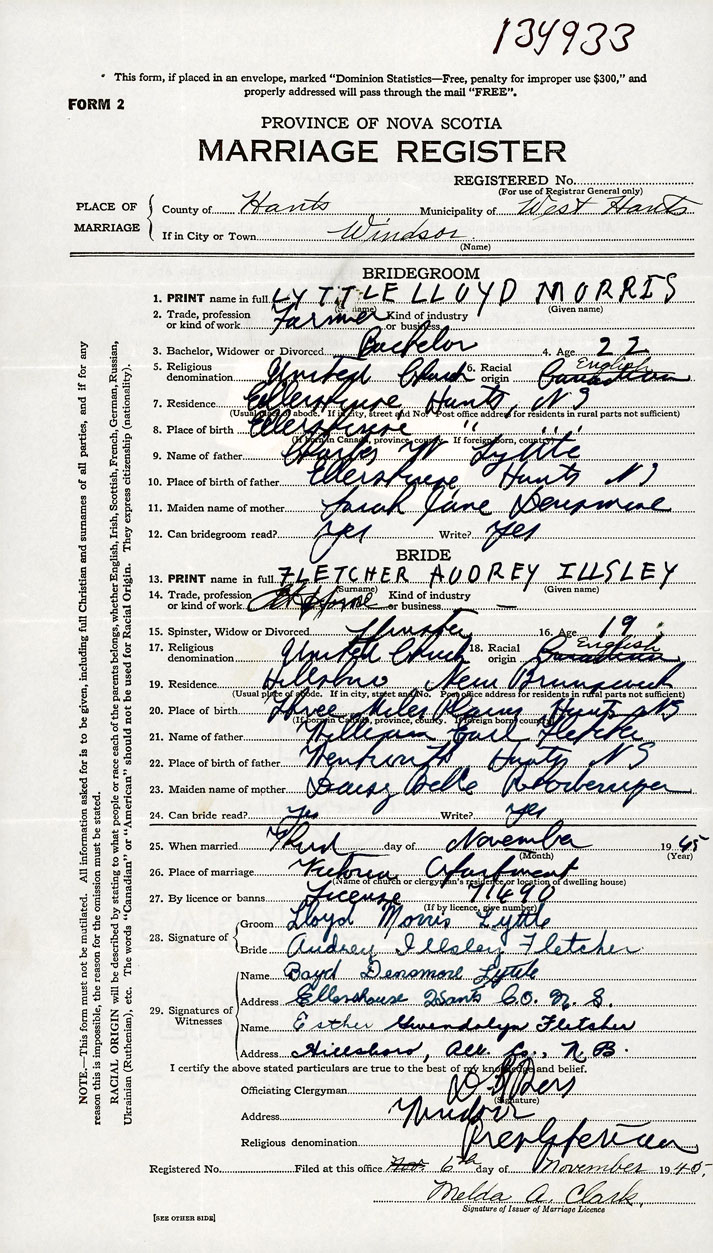 134933
* This form, if placed in an envelope, marked "Dominion Statistics—Free, penalty for improper use $300," and
properly addressed will pass through the mail "FREE".
FORM 2
PROVINCE OF NOVA SCOTIA
MARRIAGE REGISTER
REGISTERED No.
(For use of Registrar General only)
PLACE OF MARRIAGE
County of Hants Municipality of West Hants
If in City or Town Windsor
(Name)
BRIDEGROOM
1. PRINT name in full LYTTLE LLOYD MORRIS
(Surname) (Given name)
2. Trade, profession or kind of work Farmer Kind of industry or business
3. Bachelor, Widower or Divorced Bachelor 4. Age 22
5. Religious denomination United Church 6. Racial origin English Canadian
7. Residence Ellershouse Hants, NS
(Usual place of abode. If in city, street and No. Post office address for residents in rural parts not sufficient)
8. Place of birth Ellershouse " "
(If born in Canada, province, county. If foreign born, country)
9. Name of father Charles W Lyttle
10. Place of birth of father Ellershouse Hants NS
11. Maiden name of mother Sarah Jane Densmore
12. Can bridegroom read? yes Write? yes
BRIDE
13. PRINT name in full FLETCHER AUDREY ILLSLEY
(Surname) (Given name)
14. Trade, profession or kind of work At Home Kind of industry or business —
15. Spinster, Widow or Divorced Spinster 16. Age 19
17. Religious denomination United Church 18. Racial origin English Canadian
19. Residence Hillsboro New Brunswick
(Usual place of abode. If in city, street and No. Post office address for residents in rural parts not sufficient)
20. Place of birth Three Miles Plains Hants NS
(If born in Canada, province, county. If foreign born country)
21. Name of father William Earl Fletcher
22. Place of birth of father Hants NS
23. Maiden name of mother Daisy Belle
24. Can bride read? Yes Write? yes
25. When married Third day of November 1945
(Month) (Year)
26. Place of marriage Victoria Apartment
(Name of church or clergyman's residence or location of dwelling house)
27. By licence or banns License 71490
(If by licence, give number)
28. Signature of
Groom Lloyd Morris Lyttle
Bride Audrey Illsley Fletcher
29. Signatures of Witnesses
Name Boyd Densmore Lyttle
Address Ellershouse Hants Co. N.S.
Name Esther Gwendolyn Fletcher
Address Hillsboro, Alb. Co., N.B.
I certify the above stated particulars are true to the best of my knowledge and belief.
Officiating Clergyman
(Signature)
Address Windsor
Religious denomination Presbyterian
Registered No. Filed at this office Nov. 6th day of November 1945.
Melda A. Clark
Signature of Issuer of Marriage Licence
[SEE OTHER SIDE]
NOTE.—This form must not be mutilated. All information asked for is to be given, including full Christian and surnames of all parties, and if for any
reason this is impossible, the reason for the omission must be stated.
RACIAL ORIGIN will be described by stating to what people or race each of the parents belongs, whether English, Irish, Scottish, French, German, Russian,
Ukrainian (Ruthenian), etc. The words "Canadian" or "American" should not be used for Racial Origin. They express citizenship (nationality).